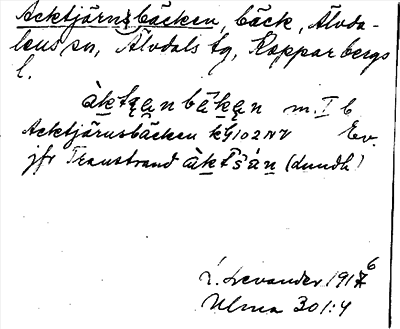 Acktjärnsbäcken, bäck, Älvda-
lens sn, Älvdals tg, Kopparbergs
l.
àktjạn bä̀kạn m. I b
Acktjärnsbäcken kg 102 NV Ev.
jfr Transtrand àktsán (Lundh)
L. Levander 1916
Ulma 301:4